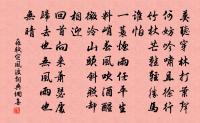 莫聽穿林打葉聲
何妨吟嘯且徐行
竹杖芒鞋輕勝馬
誰怕
一蓑煙雨任平生
料峭春風吹酒醒
微冷山頭斜照卻
相迎
回首向來蕭瑟處
歸去也無風雨也
無晴
蘇軾定風波詞典網